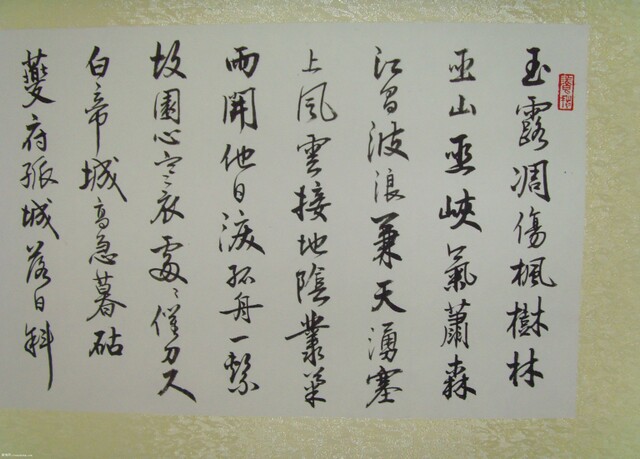 玉露凋傷楓樹林
巫山巫峽氣蕭森
江間波浪兼天湧塞
上風雲接地陰叢菊
兩開他日淚孤舟一繫
故園心寒衣處々催刀尺
白帝城高急暮砧
夔府孤城落日斜